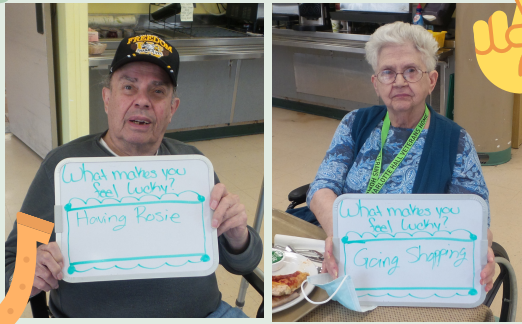 FREEDOM
What makes you
feel lucky?
Having Rosie
What makes you
feel lucky?
Going Shopping